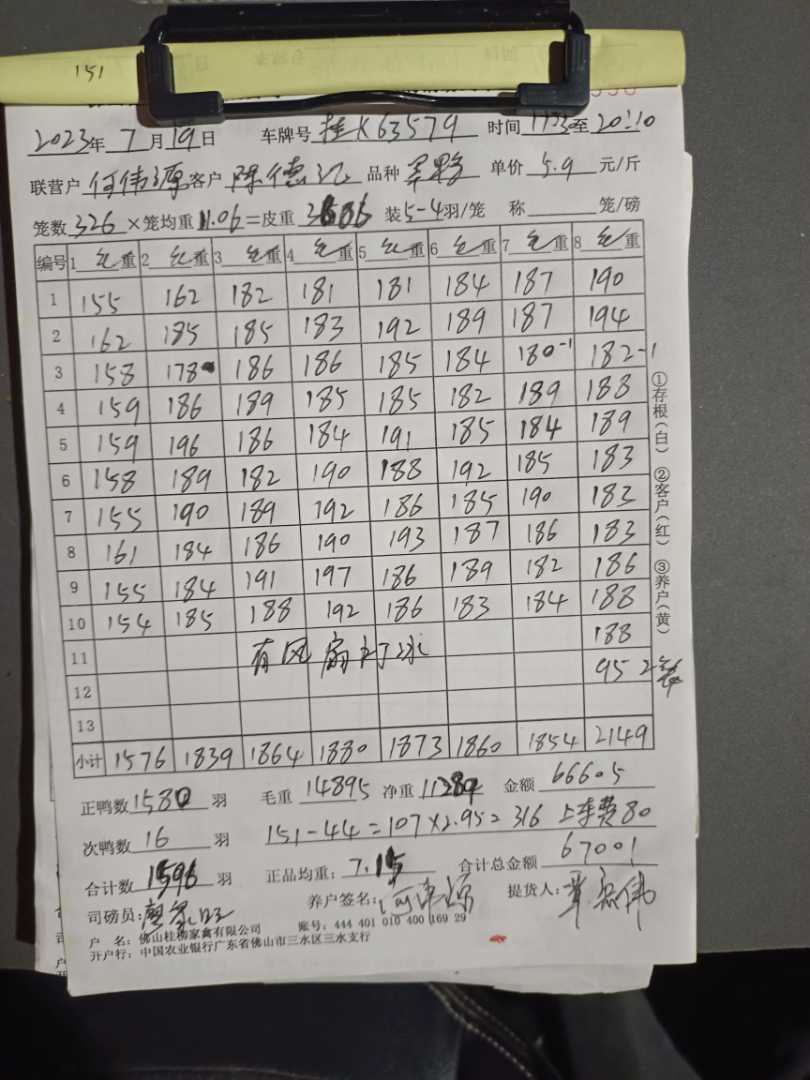 151
2023年 7 月 19 日 车牌号 桂K63579 时间 1733至20:10
联营户 何伟源 客户 陈德记 品种 单价 5.9 元/斤
笼数 326 ×笼均重 11.06 =皮重 3606 装 5-4 羽/笼 称 笼/磅
编号 1 毛重 2 毛重 3 毛重 4 毛重 5 毛重 6 毛重 7 毛重 8 毛重
1 155 162 182 181 181 184 187 190
2 162 185 185 183 192 189 187 194
3 158 178 186 186 185 184 180-1 182-1
4 159 186 189 185 185 182 189 188
5 159 196 186 184 191 185 184 189
6 158 189 182 190 188 192 185 183
7 155 190 189 192 186 185 190 183
8 161 184 186 190 193 187 186 183
9 155 184 191 197 186 189 182 186
10 154 185 188 192 186 183 184 188
11 有风扇打冰 188
12 95 2笼
13
小计 1576 1839 1864 1880 1873 1860 1854 2149
正鸭数 1580 羽 毛重 14895 净重 11289 金额 66605
次鸭数 16 羽 151-44=107×2.95=316 上车费80
合计数 1596 羽 正品均重: 7.15 合计总金额 67001
司磅员: 养户签名: 提货人:
户 名: 佛山桂柳家禽有限公司 账号: 444 401 010 400 169 29
开户行: 中国农业银行广东省佛山市三水区三水支行
①存根(白) ②客户(红) ③养户(黄)